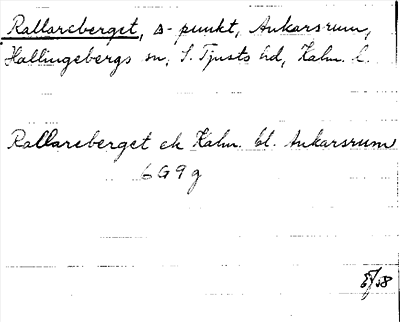 Rallareberget, △-punkt, Ankarsrum,
Hallingebergs sn, S. Tjusts hd, Kalm. l.
Rallareberget ek Kalm. bl. Ankarsrum
6G9g